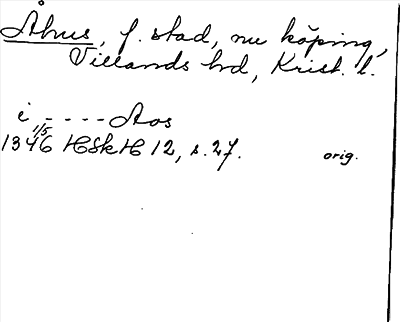 Åhus, f. stad, nu köping,
Villands hd, Krist. l.
i - - - - Aos
1346 1/5 HSkH 12, s. 27. orig.